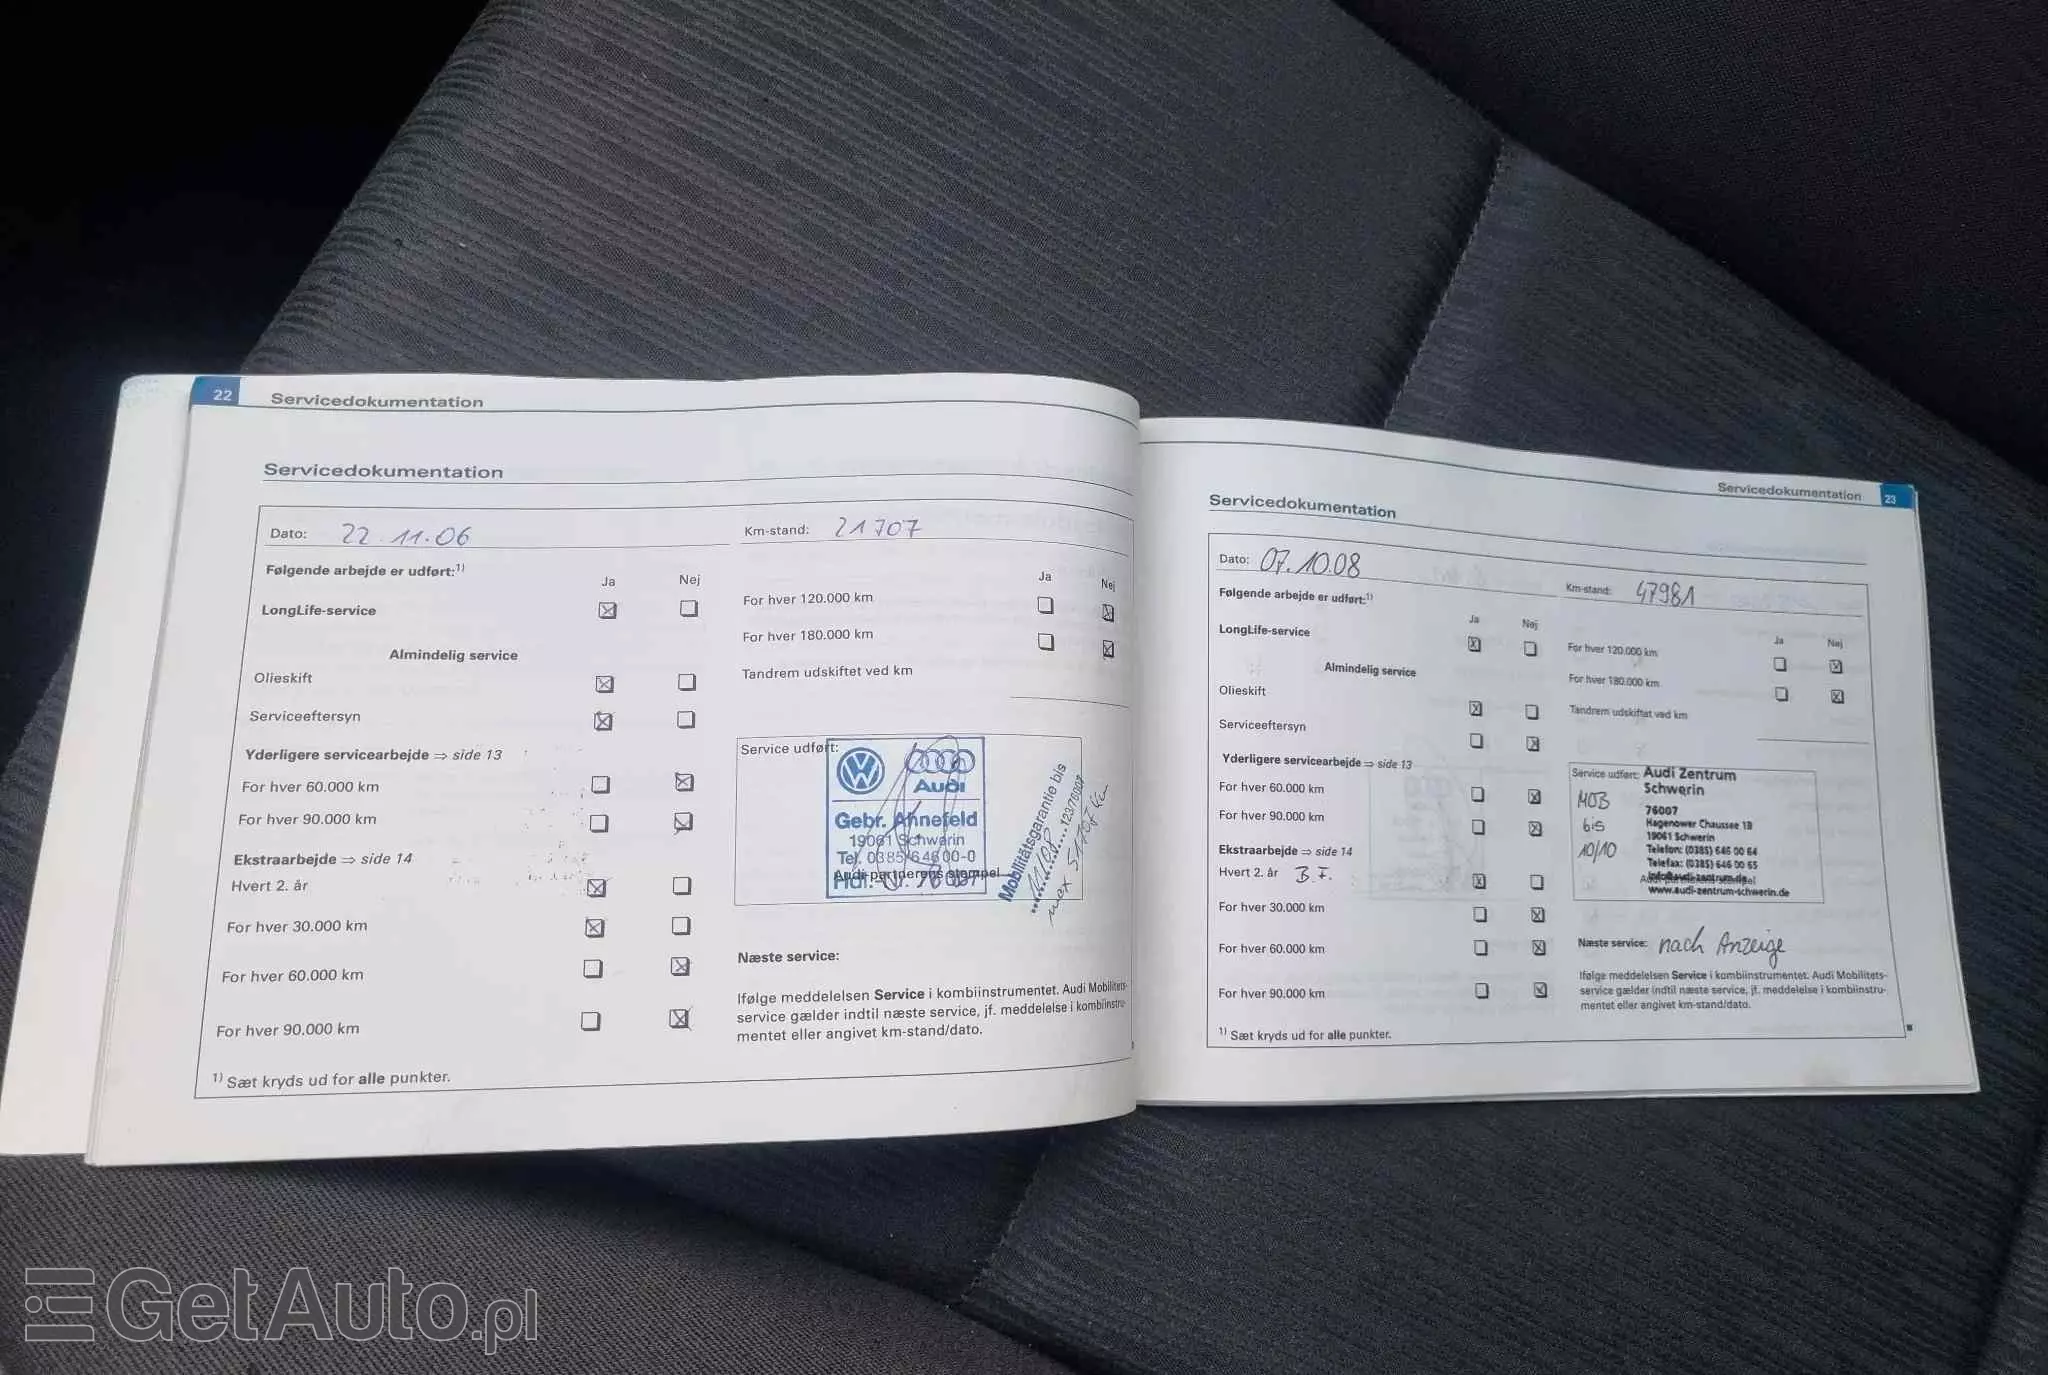 22 Servicedokumentation
Servicedokumentation
Dato: 22.11.06
Km-stand: 21707
Følgende arbejde er udført:1)
Ja Nej
LongLife-service
Almindelig service
Olieskift
Serviceeftersyn
Yderligere servicearbejde ⇒ side 13
For hver 60.000 km
For hver 90.000 km
Ekstraarbejde ⇒ side 14
Hvert 2. år
For hver 30.000 km
For hver 60.000 km
For hver 90.000 km
1) Sæt kryds ud for alle punkter.
Ja Nej
For hver 120.000 km
For hver 180.000 km
Tandrem udskiftet ved km
Service udført:
Audi
Gebr. Ahnefeld
19061 Schwerin
Tel. 0385/64600-0
Audi-partnerens stempel
Mobilitätsgarantie bis
11/08 123/76007
max 51707 km
Næste service:
Ifølge meddelelsen Service i kombiinstrumentet. Audi Mobilitets-
service gælder indtil næste service, jf. meddelelse i kombiinstru-
mentet eller angivet km-stand/dato.
Servicedokumentation 23
Servicedokumentation
Dato: 07.10.08
Km-stand: 47981
Følgende arbejde er udført:1)
Ja Nej
LongLife-service
Almindelig service
Olieskift
Serviceeftersyn
Yderligere servicearbejde ⇒ side 13
For hver 60.000 km
For hver 90.000 km
Ekstraarbejde ⇒ side 14
Hvert 2. år B.F.
For hver 30.000 km
For hver 60.000 km
For hver 90.000 km
1) Sæt kryds ud for alle punkter.
Ja Nej
For hver 120.000 km
For hver 180.000 km
Tandrem udskiftet ved km
Service udført: Audi Zentrum
Schwerin
MOB
bis
10/10
76007
Hagenower Chaussee 1B
19061 Schwerin
Telefon: (0385) 646 00 64
Telefax: (0385) 646 00 65
info@audi-zentrum.de
www.audi-zentrum-schwerin.de
Næste service: nach Anzeige
Ifølge meddelelsen Service i kombiinstrumentet. Audi Mobilitets-
service gælder indtil næste service, jf. meddelelse i kombiinstru-
mentet eller angivet km-stand/dato.
GetAuto.pl